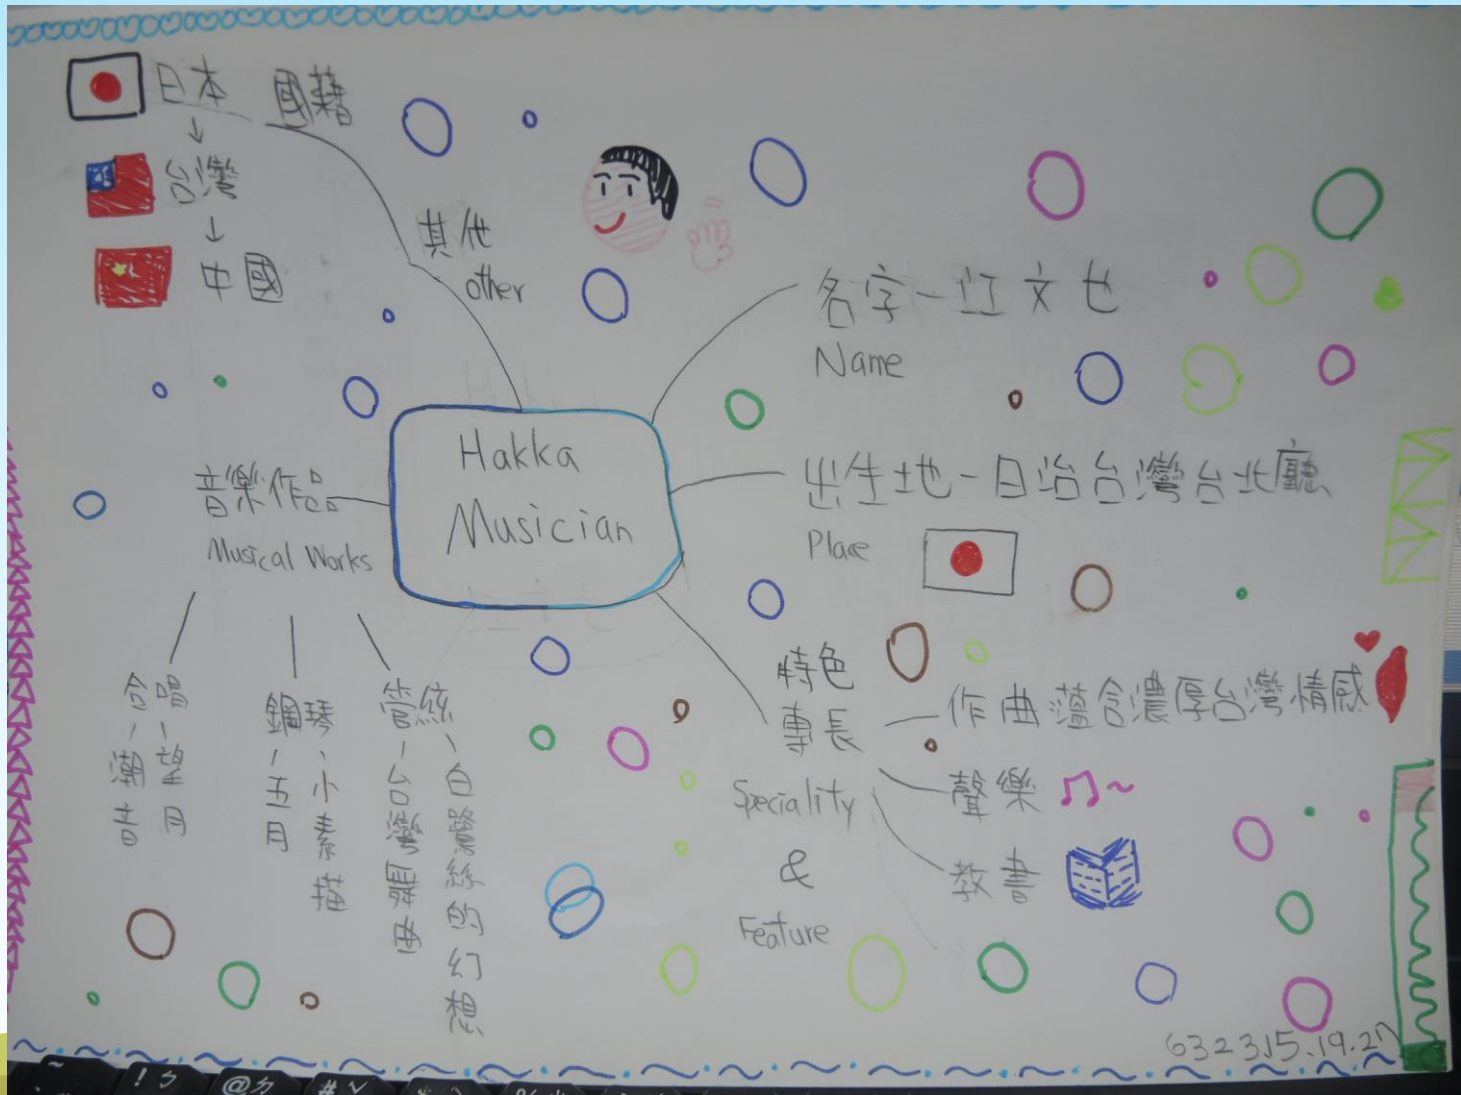 日本 國籍
↓
台灣
↓
中國
其他
other
名字-江文也
Name
Hakka
Musician
出生地-日治台灣台北廳
Place
音樂作品
Musical Works
合唱-望月
-潮音
鋼琴、小素描
-五月
管絃、白鷺絲的幻想
-台灣舞曲
特色
專長
Speciality
&
Feature
作曲蘊含濃厚台灣情感
聲樂
教書
632 3.15.19.27